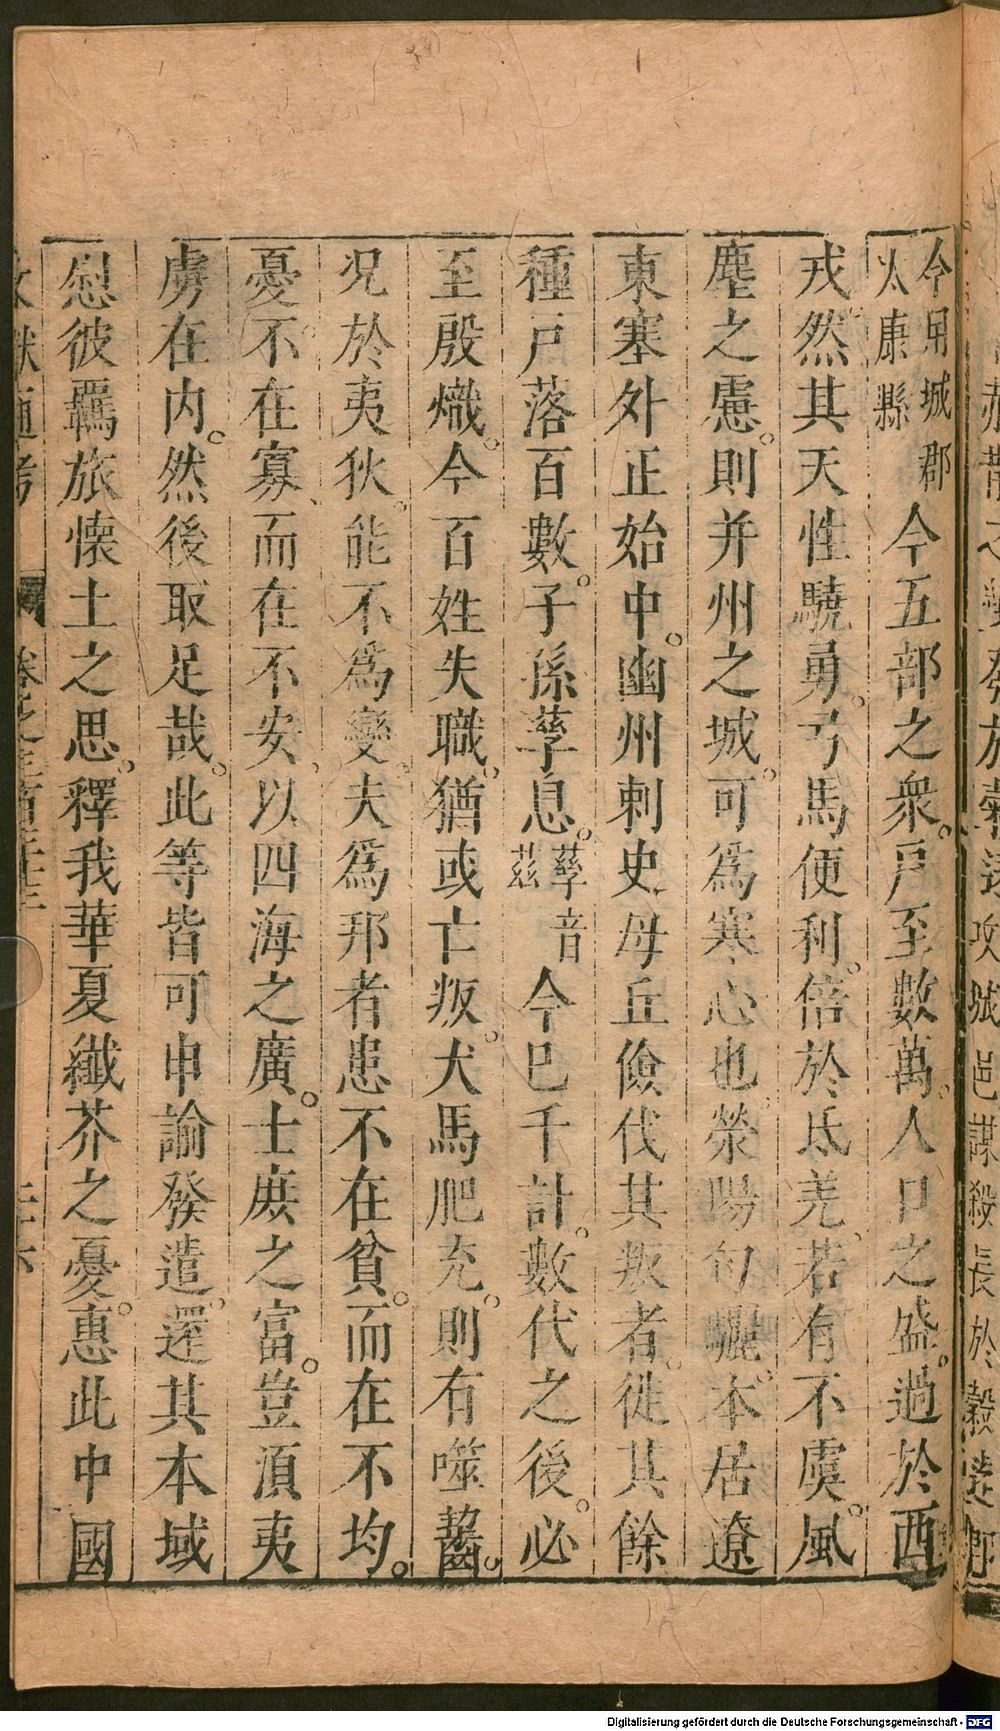 今吊城郡
太康縣
今五部之衆。戶至數萬。人口之盛。過於西
戎然其天性驍勇。弓馬便利。倍於氐羌。若有不虞。風
塵之慮。則并州之城。可爲寒心也。滎陽句驪。本居遼
東塞外正始中。幽州刺史毋丘儉伐其叛者。徙其餘
種戶落百數。子孫孳息。
孳音
茲
今巳千計。數代之後。必
至殷熾。今百姓失職。猶或亡叛。犬馬肥充。則有噬齧。
况於夷狄。能不爲變。夫爲邦者患不在貧。而在不均。
憂不在寡、而在不安、以四海之廣。士庶之富。豈須夷
虜在内。然後取足哉。此等皆可申諭發遣。還其本域
慰彼羈旅懷土之思。釋我華夏纖芥之憂。惠此中國
文獻通考
卷之三百三十三
二十六
Digitalisierung gefördert durch die Deutsche Forschungsgemeinschaft - DFG